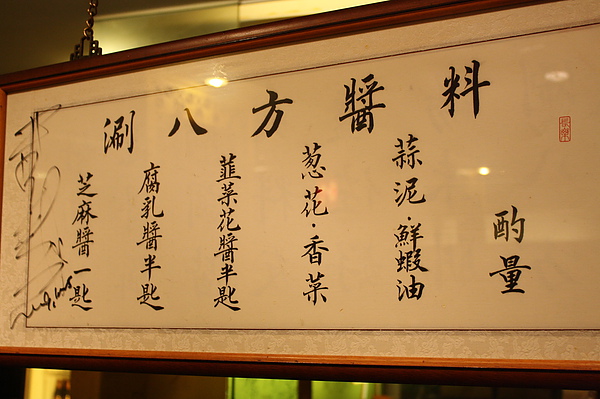 涮八方醬料
芝麻醬一匙
腐乳醬半匙
韮菜花醬半匙
葱花·香菜
蒜泥·鮮蝦油
酌量